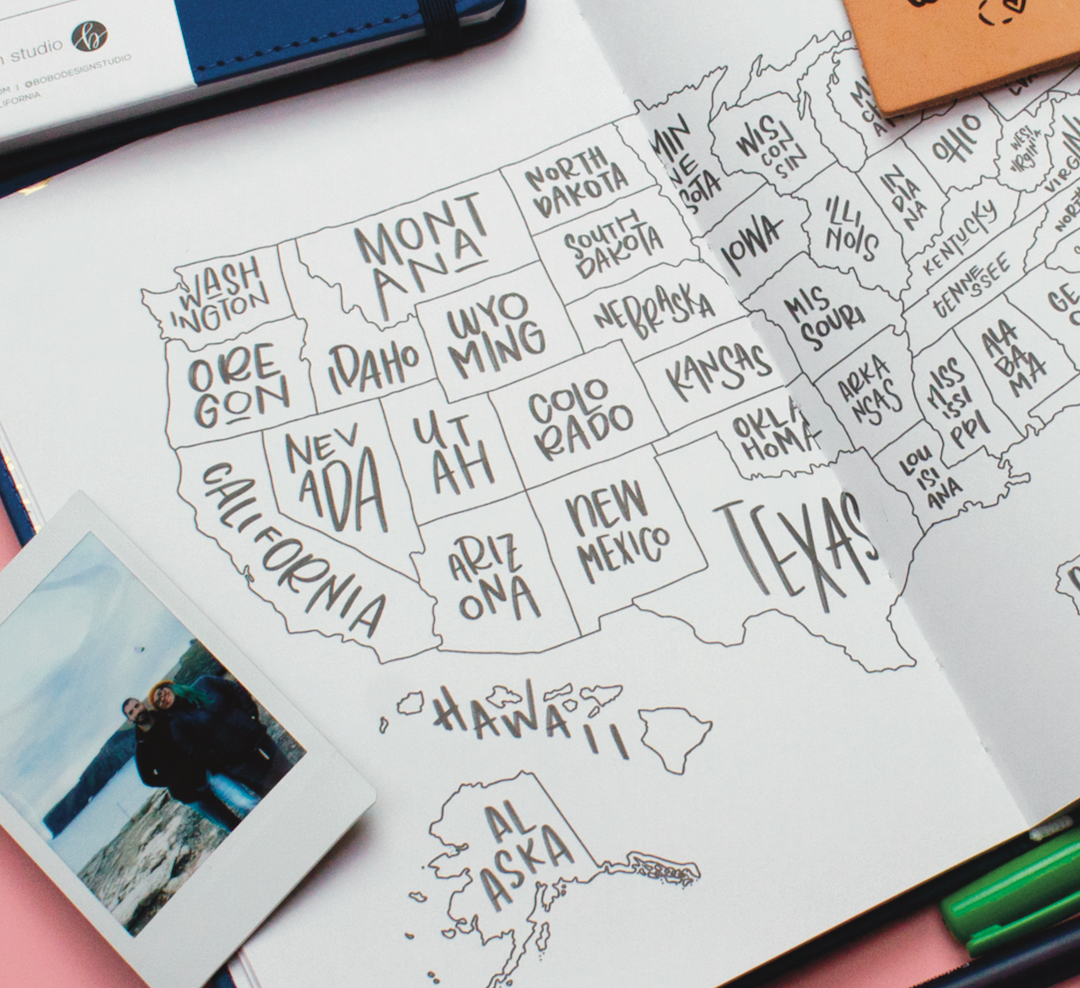 studio
@BOBODESIGNSTUDIO
b
WASH
INGTON
ORE
GON
CALIFORNIA
NEV
ADA
IDAHO
MONT
ANA
WYO
MING
UT
AH
ARIZ
ONA
COLO
RADO
NEW
MEXICO
NORTH
DAKOTA
SOUTH
DAKOTA
NEBRASKA
KANSAS
OKLA
HOMA
TEXAS
MIN
NE
SOTA
IOWA
MIS
SOURI
ARKA
NSAS
LOU
ISI
ANA
WIS
CON
SIN
ILLI
NOIS
MISS
ISSI
PPI
IN
DIA
NA
OHIO
KENTUCKY
TENNE
SSEE
ALA
BA
MA
WEST
VIRGINIA
HAWAII
AL
ASKA